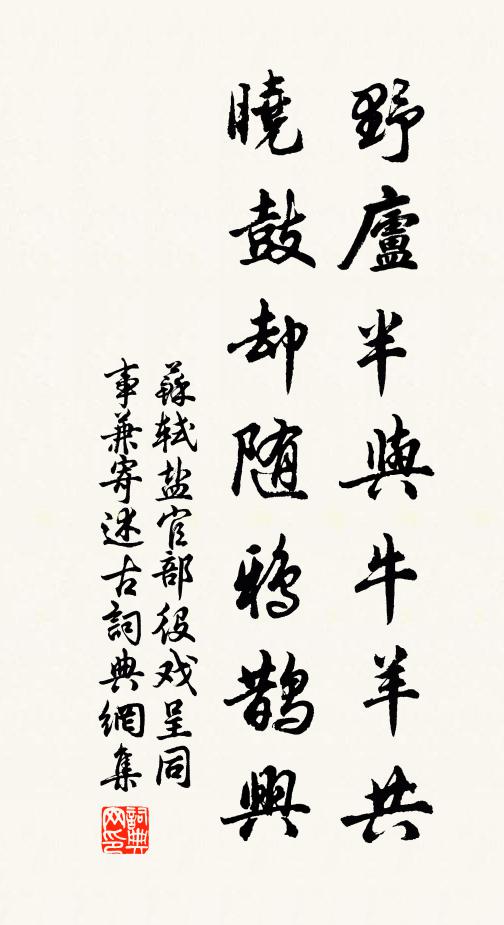 野廬半與牛羊共
曉鼓却随鴉鵲興
蘇軾盐官部役戏呈同
事兼寄述古詞典網集
詞典网印